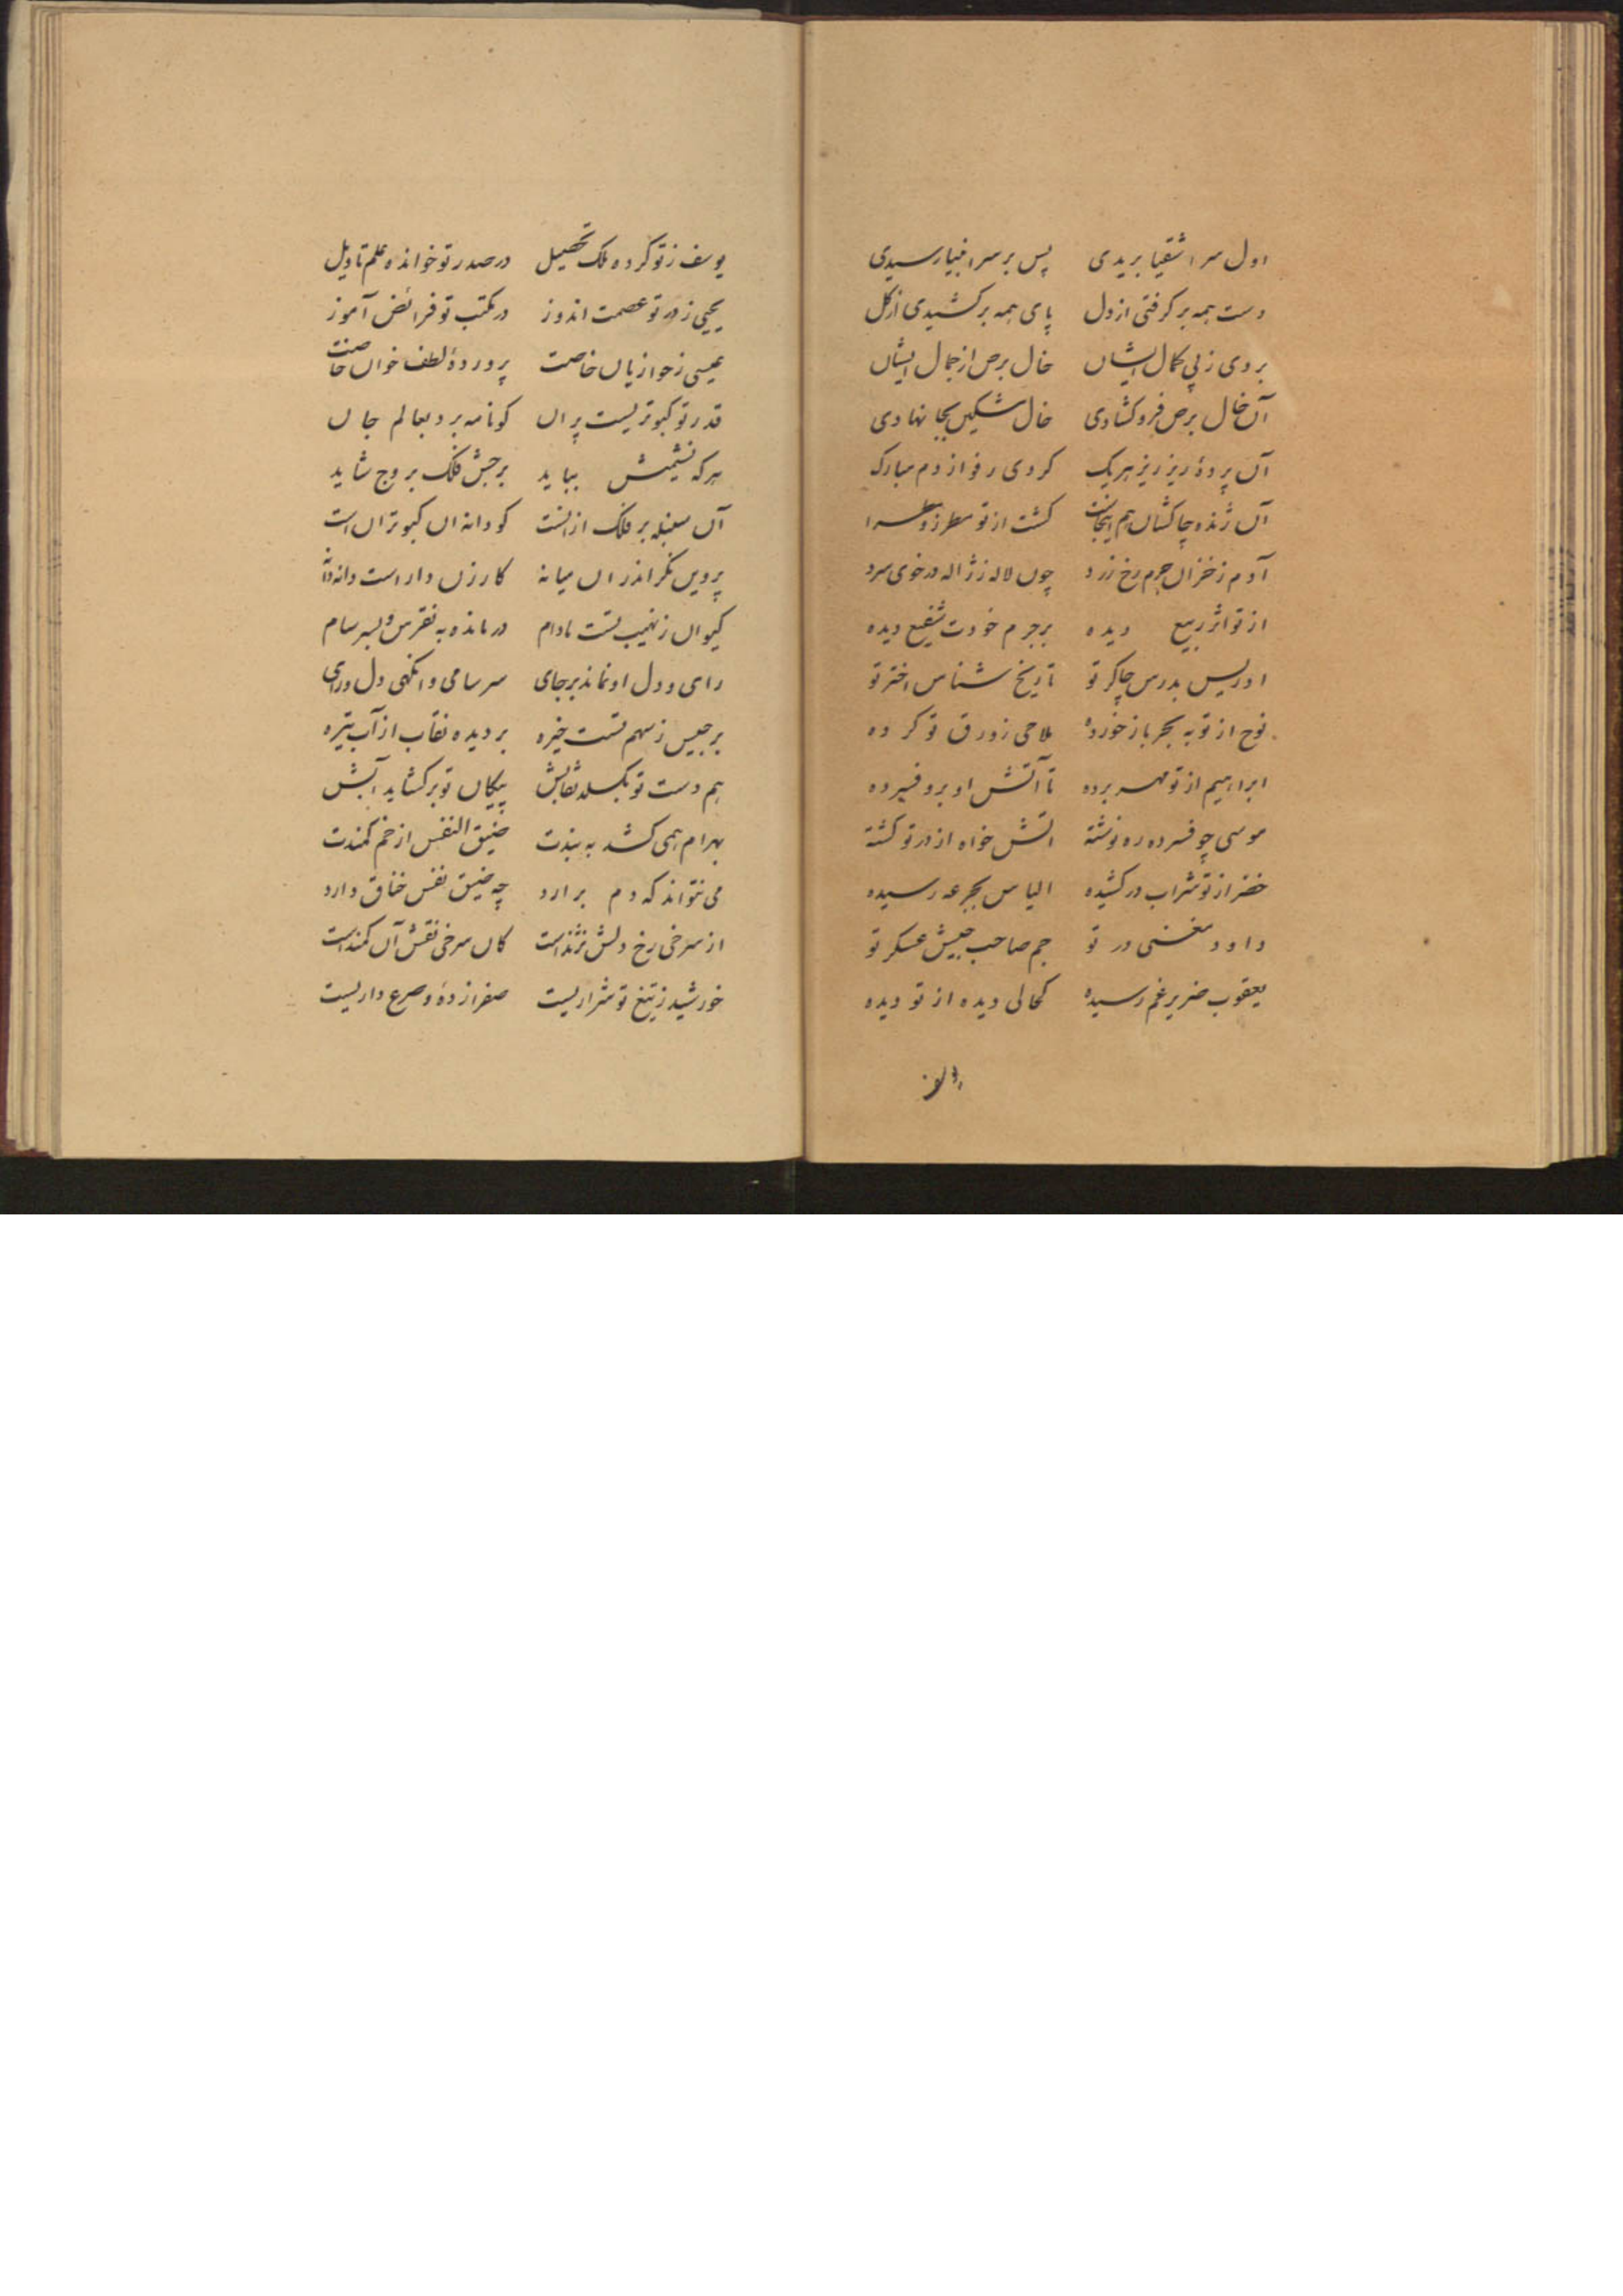 اول سر اشقیا بریدی پس بر سر انبیا رسیدی
دست همه بر کرفتی از دل پای همه بر کشیدی از کل
بردی ز پی کمال ایشان خال برص از جمال ایشان
آن خال برص فرو کشادی خال مشکین بجا نهادی
آن پردهٔ ریز ریز هر یک کردی رفو از دم مبارک
آن ژنده چاکشان هم اینجا کشت از تو مطرز و مطرا
آدم ز خزان جرم رخ زرد چون لاله ز ژاله در خوی سرد
از تو اثر ربیع دیده بر جرم خودت شفیع دیده
ادریس بدرس چاکر تو تاریخ شناس اختر تو
نوح از تو به بحر باز خورده ملاحی زورق تو کرده
ابراهیم از تو مهر برده تا آتش او برو فسرده
موسی چو فسرده ره نوشته اتش خواه از در تو کشته
خضر از تو شراب در کشیده الیاس بجرعه رسیده
داود مغنی در تو جم صاحب جیش عسکر تو
یعقوب ضریر غم رسیده کحالی دیده از تو دیده
یوسف ز تو کرده ملک تحصیل در صدر تو خوانده علم تاویل
یحیی ز در تو عصمت اندوز در مکتب تو فرائض آموز
عیسی ز حواریان خاصت پروردهٔ لطف خوان خاصت
قدر تو کبوتریست پران کو نامه برد بعالم جان
هر که نشیمنش بباید برجش فلک بروج شاید
آن سنبله بر فلک از انست کو دانه ان کبوتران است
پروین نکر اندران میانه کارزن وار است دانه دانه
کیوان ز نهیب تست مادام در مانده به نقرس و بسرسام
رای و دل او نماند بر جای سرسامی و انکهی دل و رای
برجیس ز سهم تست خیره بر دیده نقاب از آب تیره
هم دست تو بکسلد نقابش پیکان تو بر کشاید آبش
بهرام همی کشد به بندت ضیق النفس از خم کمندت
می نتواند که دم برارد چه ضیق نفس خناق دارد
از سرخی رخ دلش نژند است کان سرخی نقش آن کمند است
خورشید ز تیغ تو شراریست صفرا زده و صرع داریست